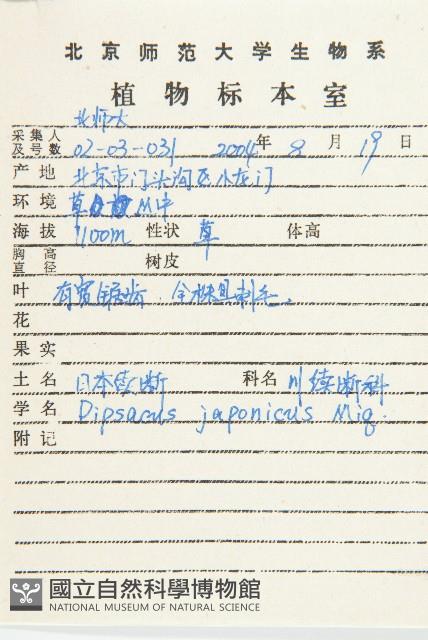 北京师范大学生物系
植物标本室
北师大
采集人及号数 02-03-031 2004年8月19日
产地 北京市门头沟区小龙门
环境 草 中
海拔 1100m 性状 草 体高
胸高直径 树皮
叶 有 锯齿. 全株具刺毛.
花
果实
土名 日本续断 科名 川续断科
学名 Dipsacus japonicus Miq.
附记
國立自然科學博物館
NATIONAL MUSEUM OF NATURAL SCIENCE